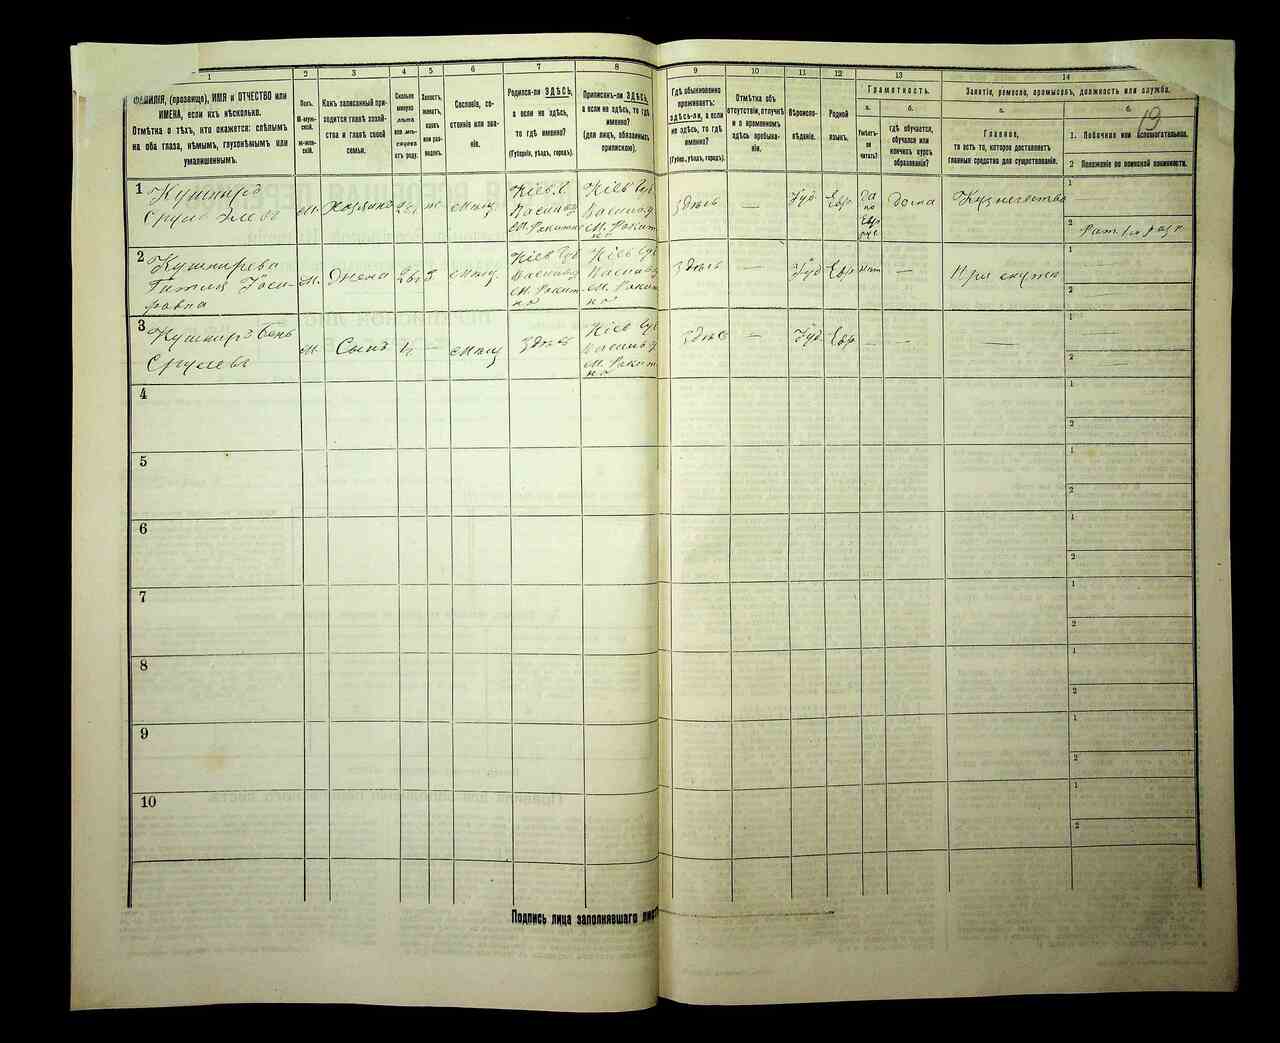 1
2
3
4
5
6
7
8
9
10
11
12
13
14
19
ФАМИЛІЯ, (прозвище), ИМЯ и ОТЧЕСТВО или
ИМЕНА, если ихъ нѣсколько.
Отмѣтка о тѣхъ, кто окажется: слѣпымъ
на оба глаза, нѣмымъ, глухонѣмымъ или
умалишеннымъ.
Полъ.
М-муж-
ской.
Ж-жен-
скій.
Какъ записанный при-
ходится главѣ хозяй-
ства и главѣ своей
семьи.
Сколько
минуло
лѣтъ
или мѣ-
сяцевъ
отъ роду.
Холостъ,
женатъ,
вдовъ
или раз-
веденъ.
Сословіе, со-
стояніе или зва-
ніе.
Родился-ли ЗДѢСЬ,
а если не здѣсь,
то гдѣ именно?
(Губернія, уѣздъ, городъ).
Приписанъ-ли ЗДѢСЬ,
а если не здѣсь, то гдѣ
именно?
(для лицъ, обязанныхъ
припискою).
Гдѣ обыкновенно
проживаетъ:
здѣсь-ли, а если
не здѣсь, то гдѣ
именно?
(Губер., уѣздъ, городъ).
Отмѣтка объ
отсутствіи, отлучкѣ
и о временномъ
здѣсь пребыва-
ніи.
Вѣроиспо-
вѣданіе.
Родной
языкъ.
Грамотность.
а.
Умѣетъ-
ли
читать?
б.
гдѣ обучается,
обучался или
кончилъ курсъ
образованія?
Занятіе, ремесло, промыселъ, должность или служба.
а.
Главное,
то есть то, которое доставляетъ
главныя средства для существованія.
б.
1. Побочное или вспомогательное.
2 Положеніе по воинской повинности.
1
Кушниръ
Сруль
м.
Хозяинъ
Кіев. г.
Кіев Губ
Васильк
м. Ракитно
здѣсь
—
Іуд
Евр.
да
по
Евр
рус
дома
1
2
Рат. 1го разр
2
Кушнирева
м.
Жена
Кіев Губ
Васильк
м. Ракит
но
Кіев Губ
Васильк
м. Ракит
но
здѣсь
—
Іуд
Евр
нѣт
—
При мужѣ
1
—
2
—
3
Кушниръ Бень
Срулевъ
м.
Сынъ
—
здѣсь
Кіев Губ
Васильк
м. Ракит
но
здѣсь
—
Іуд
Евр.
—
—
—
1
—
2
—
4
1
2
5
1
2
6
1
2
7
1
2
8
1
2
9
1
2
10
1
2
Подпись лица заполнявшаго лист